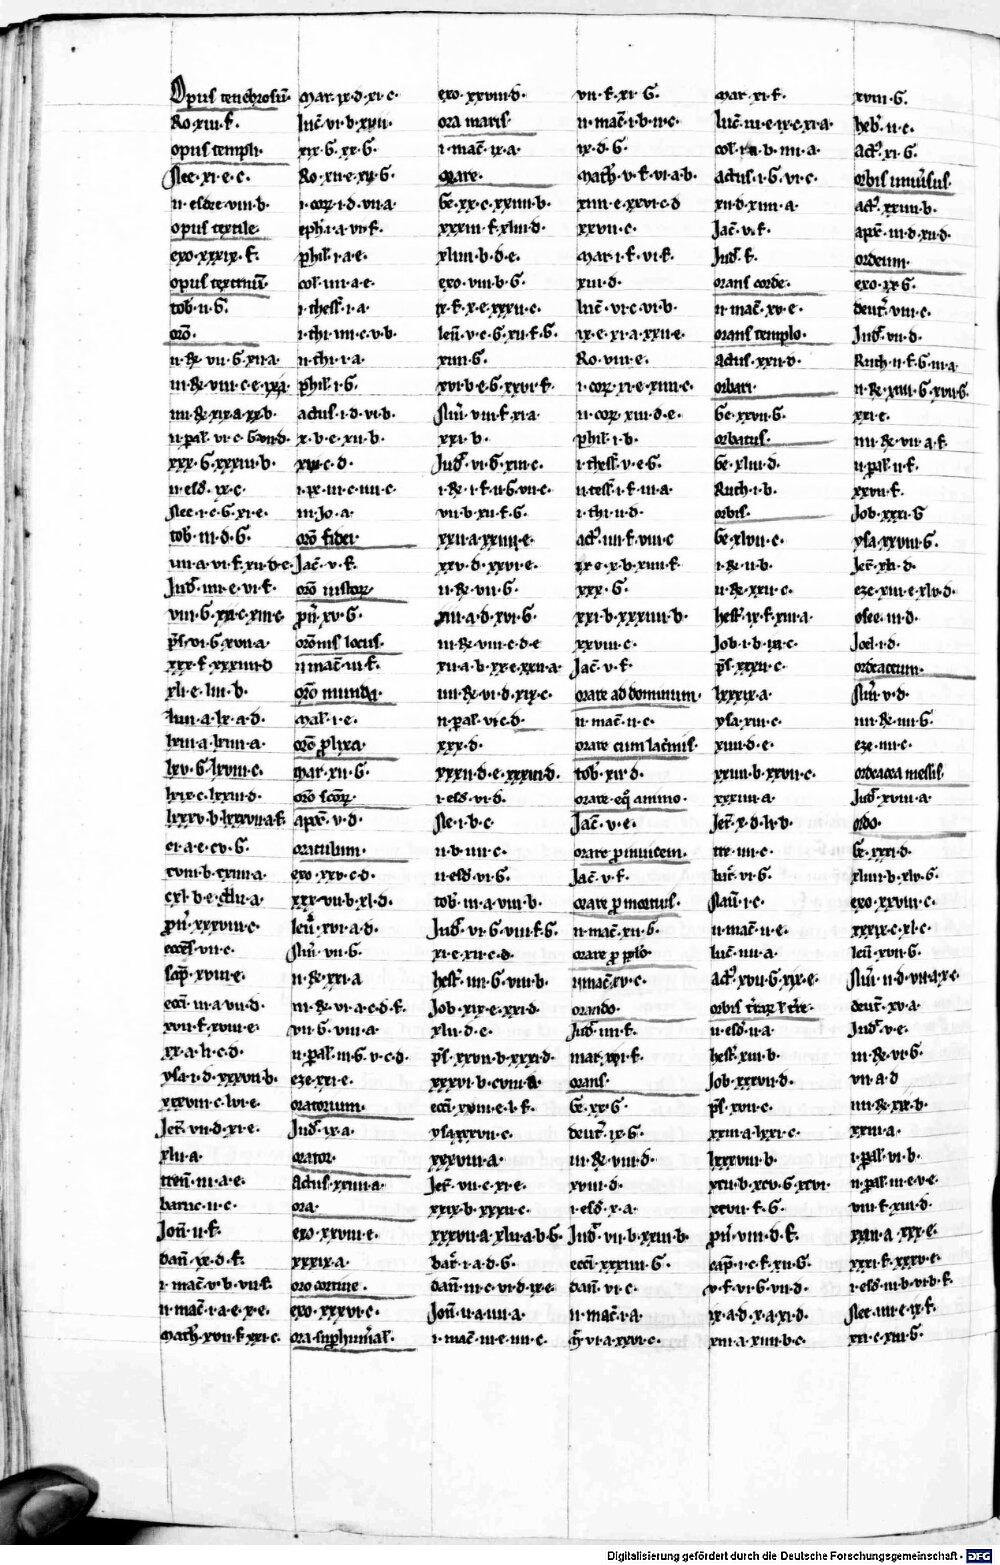 Opus tenebrosū·
Ro·xiii·f·
opus templi·
Nee·xi·e·c·
ii·esdre·viii·b·
opus textile·
exo·xxxix·f·
opus textrinū·
tob·ii·G·
orō·
ii·Re·vii·G·xii·a·
iii·Re·viii·c·e·ix·a·
iiii·Re·xix·a·xx·b·
ii·pal·vi·c·G·vii·d·
xxx·G·xxxiii·b·
ii·esd·ix·c·
Nee·i·c·G·xi·e·
tob·iii·d·G·
iiii·a·vi·f·xii·b·c·
Jud·iiii·e·vi·f·
viii·G·xii·c·xiii·c·
ps·vi·G·xvii·a·
xxx·f·xxxiii·d
xli·e·liii·b·
liiii·a·lx·a·d·
lxiii·a·lxiiii·a·
lxv·G·lxviii·c·
lxix·c·lxxiii·d·
lxxxv·b·lxxxvii·a·f·
ci·a·e·cv·G·
cviii·b·cxiiii·a·
cxl·b·e·clii·a·
pu·xxxviii·c·
eccs·vii·c·
sap·xviii·e·
ecci·iii·a·vii·d·
xvii·f·xviii·e·
xx·a·li·c·d·
ysa·i·d·xxxvii·b·
xxxviii·c·lvi·e·
Jer·vii·d·xi·e·
xlii·a·
tren·iii·a·e·
baruc·ii·c·
Jon·ii·f·
dan·ix·d·f·
i·mac·v·b·vii·f·
ii·mac·i·a·e·x·e·
math·xvii·f·xxi·c·
mar·ix·d·xi·c·
luc·vi·b·xxii·
xix·G·xx·G·
Ro·xii·e·xv·G·
i·cor·i·d·vii·a·
ephi·i·a·vi·f·
phil·i·a·e·
col·iiii·a·e·
i·thess·i·a·
i·thi·iiii·c·v·b·
ii·thi·i·a·
phil·i·G·
actus·i·d·vi·b·
x·b·e·xii·b·
xvi·c·d·
i·pe·iii·c·iiii·c·
iii·Jo·a·
orō fidei·
Jac·v·f·
orō iustor·
pu·xv·G·
orōnis locus·
ii mac·iii·f·
orō munda·
mal·i·e·
orō plixa·
mar·xii·G·
orō scor·
apoc·v·d·
oraculum·
exo·xxv·c·d·
xxx·vii·b·xl·d·
leu·xvi·a·d·
Nu·vii·G·
ii·Re·xxi·a
iii·Re·vi·a·c·d·f·
vii·G·viii·a·
ii·pal·iii·G·v·c·d·
eze·xxi·e·
oratorium·
Jud·ix·a·
orator·
Actus·xxiiii·a·
ora·
exo·xxviii·e·
xxxix·a·
oro cortine·
exo·xxxvi·c·
ora suphumal·
exo·xxviii·d·
ora maris·
i·mac·ix·a·
orare·
Ge·xx·c·xxiiii·b·
xxxiii·f·xliii·d·
xlviii·b·d·e·
exo·viii·b·G·
ix·f·x·e·xxxii·c·
leu·v·c·G·xii·f·G·
xiiii·G·
xvi·b·e·G·xxvi·f·
Nu·viii·f·xi·a·
xxi·b·
Jud·vi·G·xiii·c·
i·Re·i·f·ii·G·vii·c·
vii·b·xii·f·G·
xxii·a·xxiiii·e·
xxv·d·xxvi·e·
ii·Re·vii·G·
xiii·a·d·xvi·G·
iii·Re·viii·c·d·e
xii·a·b·xx·e·xxii·a·
iiii·Re·vi·d·xix·c·
ii·pal·vi·c·d·
xxx·d·
xxxii·d·e·xxxiii·d·
i·esd·vi·d·
Ne·i·b·c·
ii·b·iiii·c·
ii·esd·vi·G·
tob·iii·a·viii·b·
Jud·vi·G·viii·f·G·
xi·e·xii·c·d·
hest·iiii·G·viii·b·
Job·xix·e·xxi·d·
xlii·d·e·
ps·xxvii·b·xxxi·d·
xxxvi·b·cviii·a·
ecci·xxiii·e·l·f·
ysa·xxxvii·c·
xxxviii·a·
Jer·vii·c·xi·e·
xxix·b·xxxii·c·
xxxvii·a·xlii·a·b·G·
bar·i·a·d·G·
dan·iii·c·vi·d·ix·e·
Jon·ii·a·iiii·a·
i·mac·iii·e·iiii·c·
vii·f·xi·G·
ii·mac·i·b·ii·c·
ix·d·G·
math·v·f·vi·a·b·
xiiii·e·xxvi·c·d
xxvii·c·
mar·i·f·vi·f·
xiii·d·
luc·vi·c·vi·b·
ix·e·xi·a·xxii·e·
Ro·viii·e·
i·cor·xi·e·xiiii·c·
ii·cor·xiii·d·e·
phil·i·b·
i·thess·v·e·G·
ii·tess·i·f·iii·a·
i·thi·ii·d·
act·iiii·f·viii·c
ix·e·x·b·xiii·f·
xxx·G·
xxi·b·xxxiiii·b·
xxviii·c·
Jac·v·f·
orare ad dominum·
ii·mac·ii·c·
orare cum lacimis·
tob·xii·d·
orare eq animo·
Jac·v·e·
orare p inuicem·
Jac·v·f·
orare p mortuis·
ii·mac·xii·G·
orare p pplo·
ii mac·xv·c·
orando·
Jud·iiii·f·
mar·xvi·f·
orans·
Ge·xx·G·
deut·ix·G·
iii·Re·viii·d·
xviii·d·
i·esd·x·a·
Jud·vii·b·xxiii·b·
ecci·xxxiiii·G·
dan·vi·c·
ii·mac·i·a·
vi·a·xxvi·c·
mar·xi·f·
luc·iii·e·ix·c·xi·a·
col·i·b·iiii·a·
actus·i·G·vi·c·
xii·d·xiiii·a·
Jac·v·f·
Jud·f·
orans corde·
ii·mac·xv·e·
orans templo·
actus·xxii·d·
orbari·
Ge·xxvii·G·
orbatus·
Ge·xliii·d·
Ruth·i·b·
orbis·
Ge·xlvii·c·
i·Re·ii·b·
ii·Re·xxii·c·
hest·ix·f·xiii·a·
Job·i·b·ix·c·
ps·xxxii·c·
lxxxix·a·
ysa·xiii·c·
xiiii·d·e·
xxiiii·b·xxvii·c·
xxxiiii·a·
Jer·x·d·li·b·
tre·iiii·c·
luc·vi·G·
Nau·i·c·
ii·mac·ii·e·
luc·iiii·a·
act·xvii·G·xix·e·
orbis trar l tre·
ii·esd·ii·a·
hest·xiii·b·
Job·xxxvii·d·
ps·xvii·c·
xxiii·a·lxxi·c·
lxxxviii·b·
xcii·b·xcv·G·xcvi·
xcvii·f·G·
pu·viii·d·f·
sap·i·c·f·xii·G·
v·f·vi·G·vii·d·
ix·a·d·x·a·xi·d·
xiii·a·xiiii·b·c·
xviii·G·
heb·ii·c·
act·xi·G·
orbis uniusus·
act·xxiiii·b·
apoc·iii·d·xii·d·
ordeum·
exo·ix·G·
deut·viii·c·
Jud·vii·d·
Ruth·ii·f·G·iii·a·
ii·Re·xiiii·G·xvii·G·
xxi·e·
iiii·Re·vii·a·f·
ii·pal·ii·f·
xxvii·f·
Job·xxxi·G
ysa·xxviii·G·
Jer·xli·d·
eze·xiii·e·xlv·d·
osee·iii·d·
Joel·i·d·
ordeaceum·
Nu·v·d·
iiii·Re·iiii·G·
eze·iiii·c·
ordeacea messis·
Jud·xviii·a·
ordo·
Ge·xxxi·d·
xliiii·b·xlv·G·
exo·xxviii·c·
xxxix·c·xl·c·
leu·xvii·G·
Nu·ii·d·vii·a·x·c·
deut·xv·a·
Jud·v·e·
iii·Re·vi·G·
vii·a·d
iiii·Re·xix·b·
xxiii·a·
i·pal·vi·b·
ii·pal·iii·e·v·e·
viii·f·xiii·d·
xxiii·a·xxx·e·
xxxi·f·xxxv·e·
i·esd·iii·b·vi·b·f·
Nee·iiii·e·ix·f·
xii·c·xiii·G·
Digitalisierung gefördert durch die Deutsche Forschungsgemeinschaft - DFG